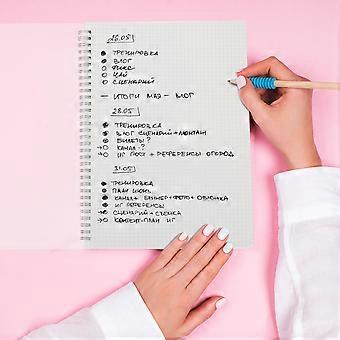 26.05
● ТРЕНИРОВКА
● ВЛОГ
○ ФИКС
○ ЧАЙ
○ СЦЕНАРИЙ
— ИТОГИ МАЯ — ВЛОГ
28.05
● ТРЕНИРОВКА
● ВЛОГ СЦЕНАРИЙ + МОНТАЖ
● БИЛЕТЫ?
→○ КАНАЛ?
→○ ИГ ПОСТ + РЕФЕРЕНСЫ ОГОРОД
31.05
● ТРЕНИРОВКА
● ПЛАН ИЮНЬ
● КАНАЛ + БАННЕР + ФОТО +
● ИГ РЕФЕРЕНСЫ
→○ СЦЕНАРИЙ + СЪЕМКА
→○ КОНТЕНТ-ПЛАН ИГ